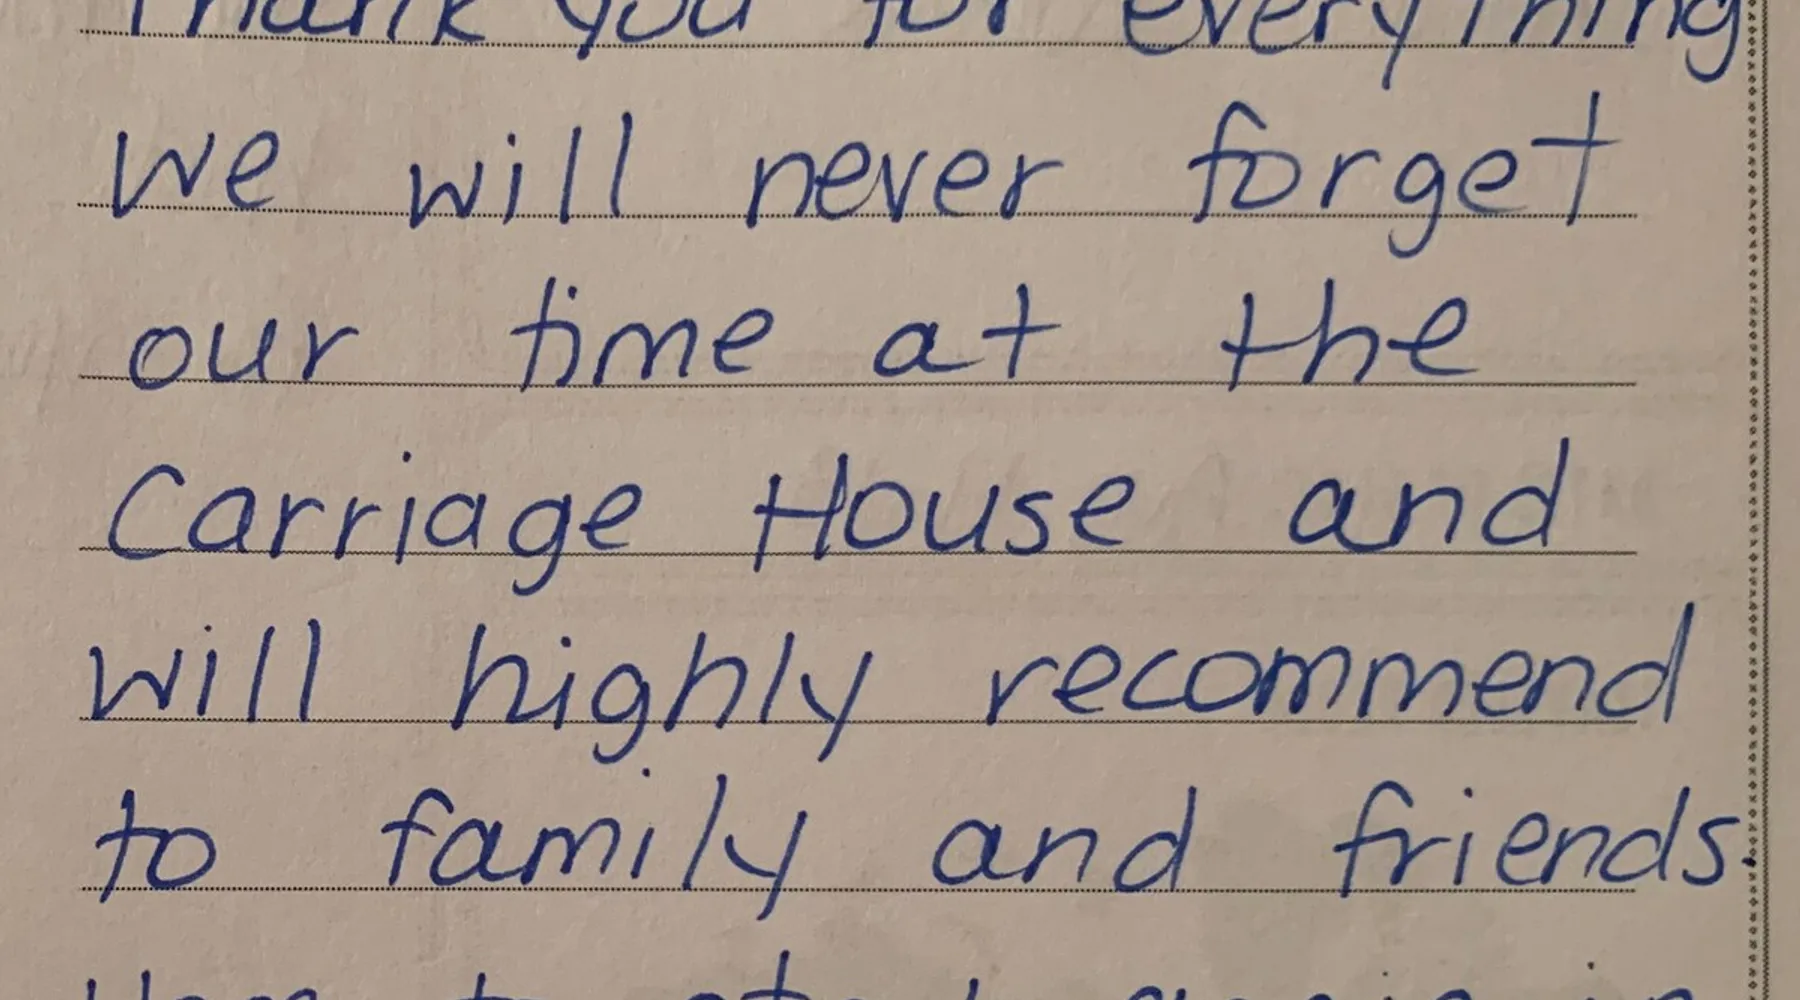 Thank you for everything
We will never forget
our time at the
Carriage House and
will highly recommend
to family and friends.